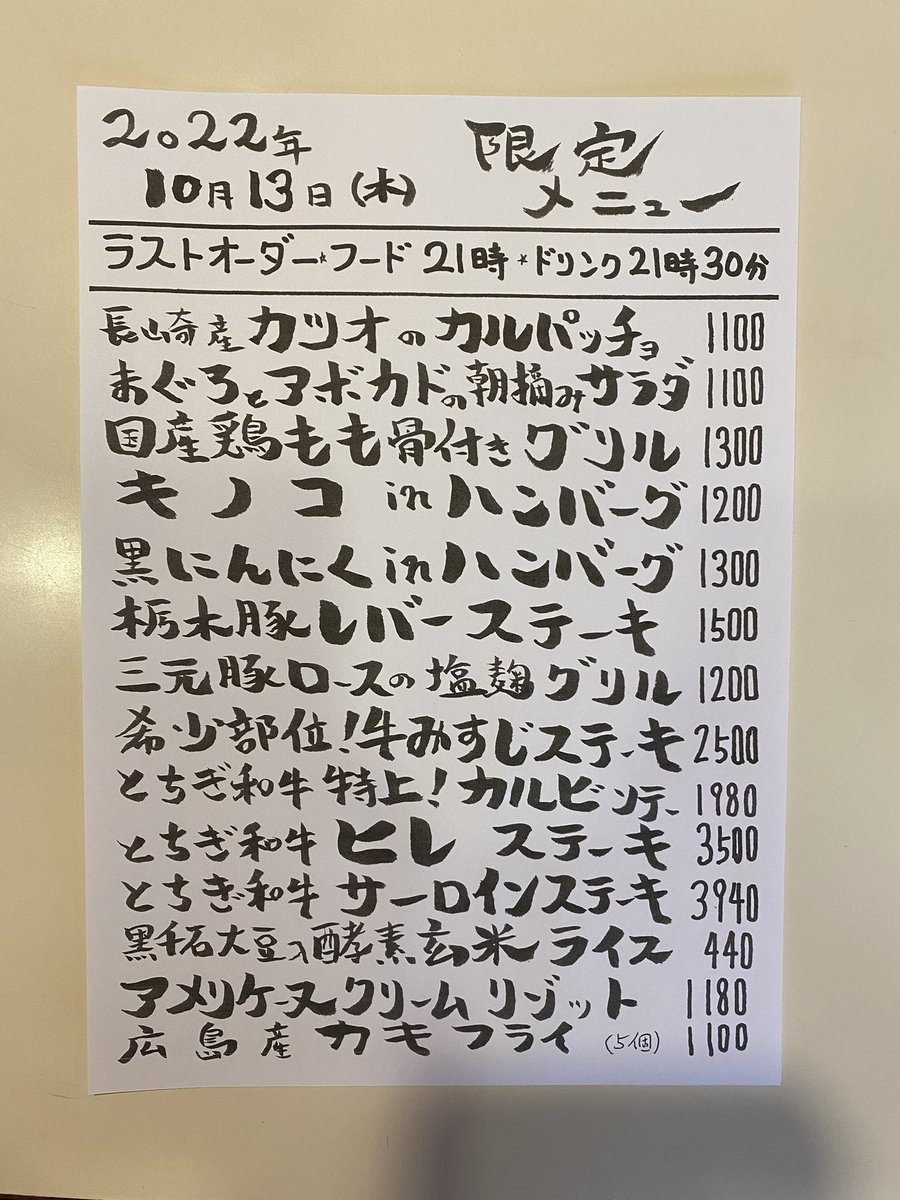 2022年 限定
10月13日(木) メニュー
ラストオーダー★フード 21時★ドリンク21時30分
長崎産カツオのカルパッチョ 1100
まぐろとアボカドの朝摘みサラダ 1100
国産鶏もも骨付きグリル 1300
キノコinハンバーグ 1200
黒にんにくinハンバーグ 1300
栃木豚レバーステーキ 1500
三元豚ロースの塩麹グリル 1200
希少部位!牛みすじステーキ 2500
とちぎ和牛特上!カルビソテー 1980
とちぎ和牛ヒレステーキ 3500
とちぎ和牛サーロインステーキ 3940
黒千石大豆入酵素玄米ライス 440
アメリケーヌクリームリゾット 1180
広島産カキフライ(5個) 1100